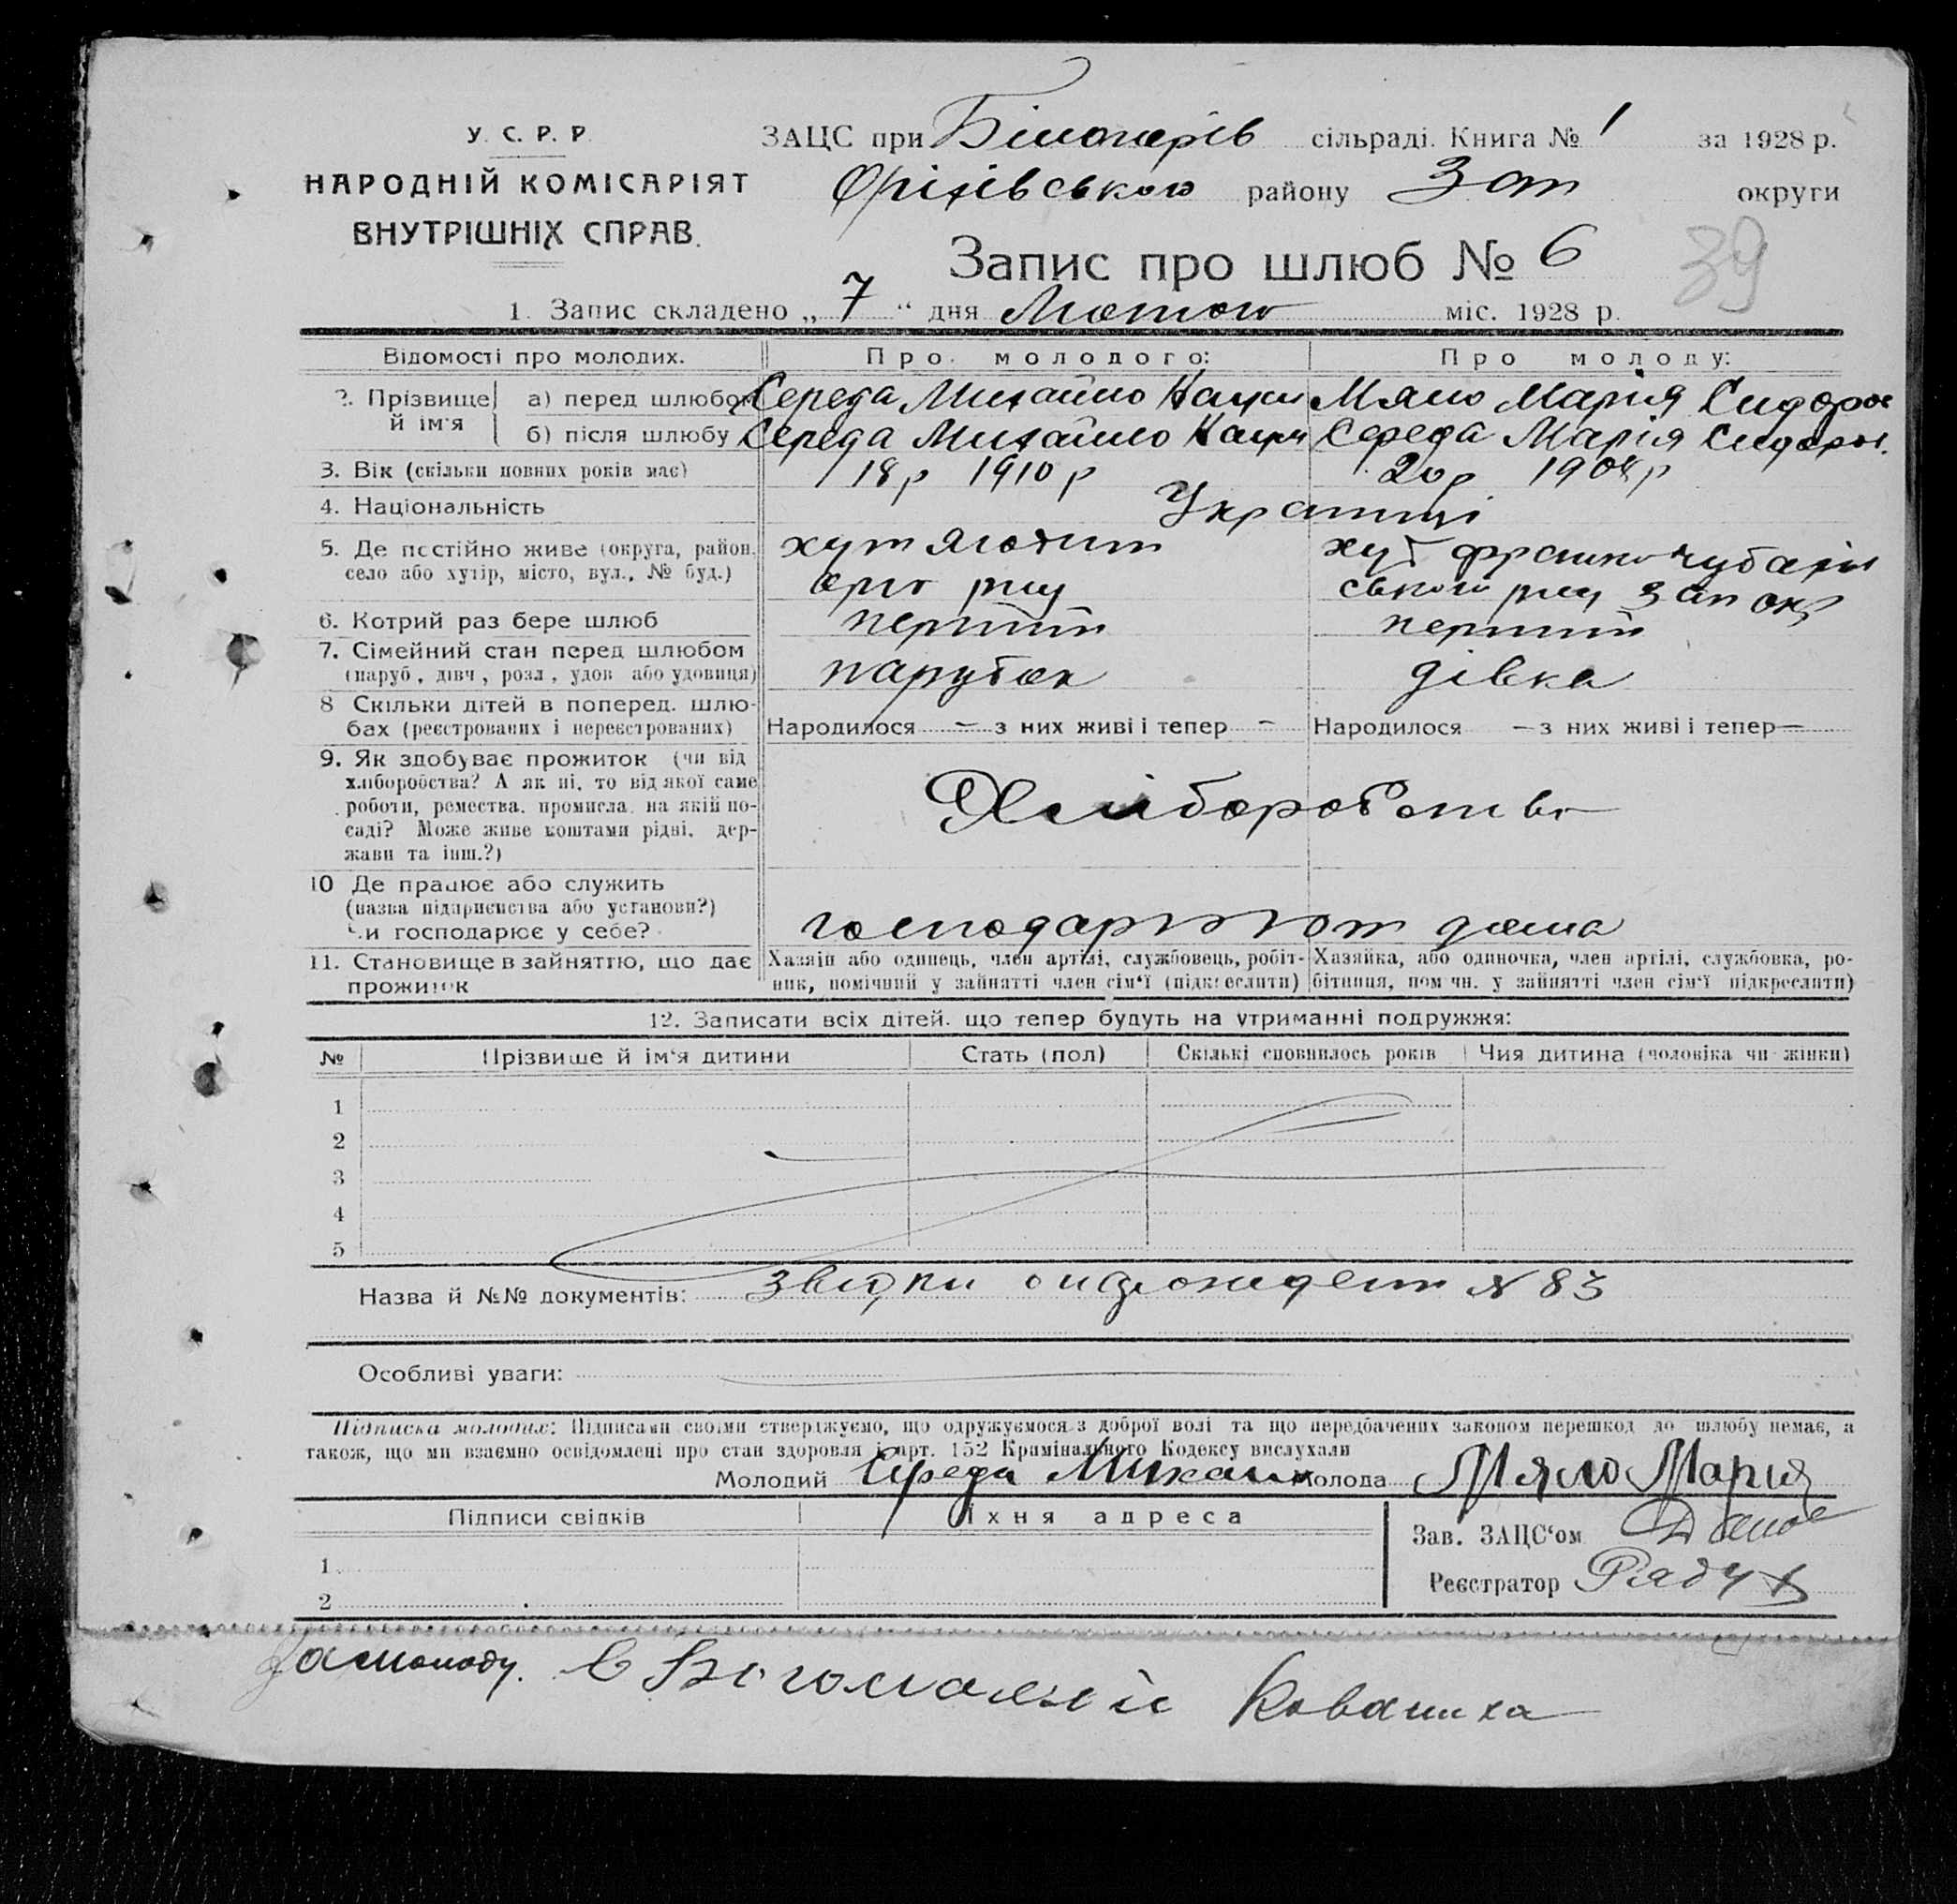 У. С. Р. Р.
НАРОДНІЙ КОМІСАРІЯТ
ВНУТРІШНІХ СПРАВ.
ЗАЦС при сільраді. Книга № 1 за 1928 р.
Оріхівського району Зап округи
Запис про шлюб № 6
39
1. Запис складено „ 7 “ дня Лютого міс. 1928 р.
Відомості про молодих. Про молодого: Про молоду:
2. Прізвище й ім'я а) перед шлюбом Середа Михайло Наум Мяло Марія Сидоров
б) після шлюбу Середа Михайло Наум Середа Марія Сидоров.
3. Вік (скільки повних років має) 18 р 1910 р 20 р 1908 р
4. Національність Українці
5. Де постійно живе (округа, район, хут хут
село або хутір, місто, вул., № буд.) ського зап окр
6. Котрий раз бере шлюб перший перший
7. Сімейний стан перед шлюбом
(паруб., дівч., розл., удов. або удовиця) парубок дівка
8 Скільки дітей в поперед. шлю-
бах (реєстрованих і нереєстрованих) Народилося — з них живі і тепер — Народилося — з них живі і тепер —
9. Як здобуває прожиток (чи від
хліборобства? А як ні, то від якої саме
роботи, ремества, промисла, на якій по-
саді? Може живе коштами рідні, дер-
жави та інш.?)
Хліборобство
10 Де працює або служить
(назва підприємства або установи?)
Чи господарює у себе? господарюют дома
11. Становище в зайняттю, що дає Хазяїн або одинець, член артілі, службовець, робіт- Хазяйка, або одиночка, член артілі, службовка, ро-
прожиток ник, помічний у зайнятті член сім'ї (підкреслити) бітниця, помічн. у зайнятті член сім'ї підкреслити)
12. Записати всіх дітей. що тепер будуть на утриманні подружжя:
№ Прізвище й ім'я дитини Стать (пол) Скількі сповнилось років Чия дитина (чоловіка чи жінки)
1
2
3
4
5
Назва й №№ документів: звідки N 83
Особливі уваги:
Підписка молодих: Підписами своїми стверджуємо, що одружуємося з доброї волі та що передбачених законом перешкод до шлюбу немає, а
також, що ми взаємно освідомлені про стан здоровля і арт. 152 Крамінального Кодексу вислухали
Молодий Середа Михаил Молода Мяло Мария
Підписи свідків Їхня адреса
Зав. ЗАЦС'ом
1.
Реєстратор
2